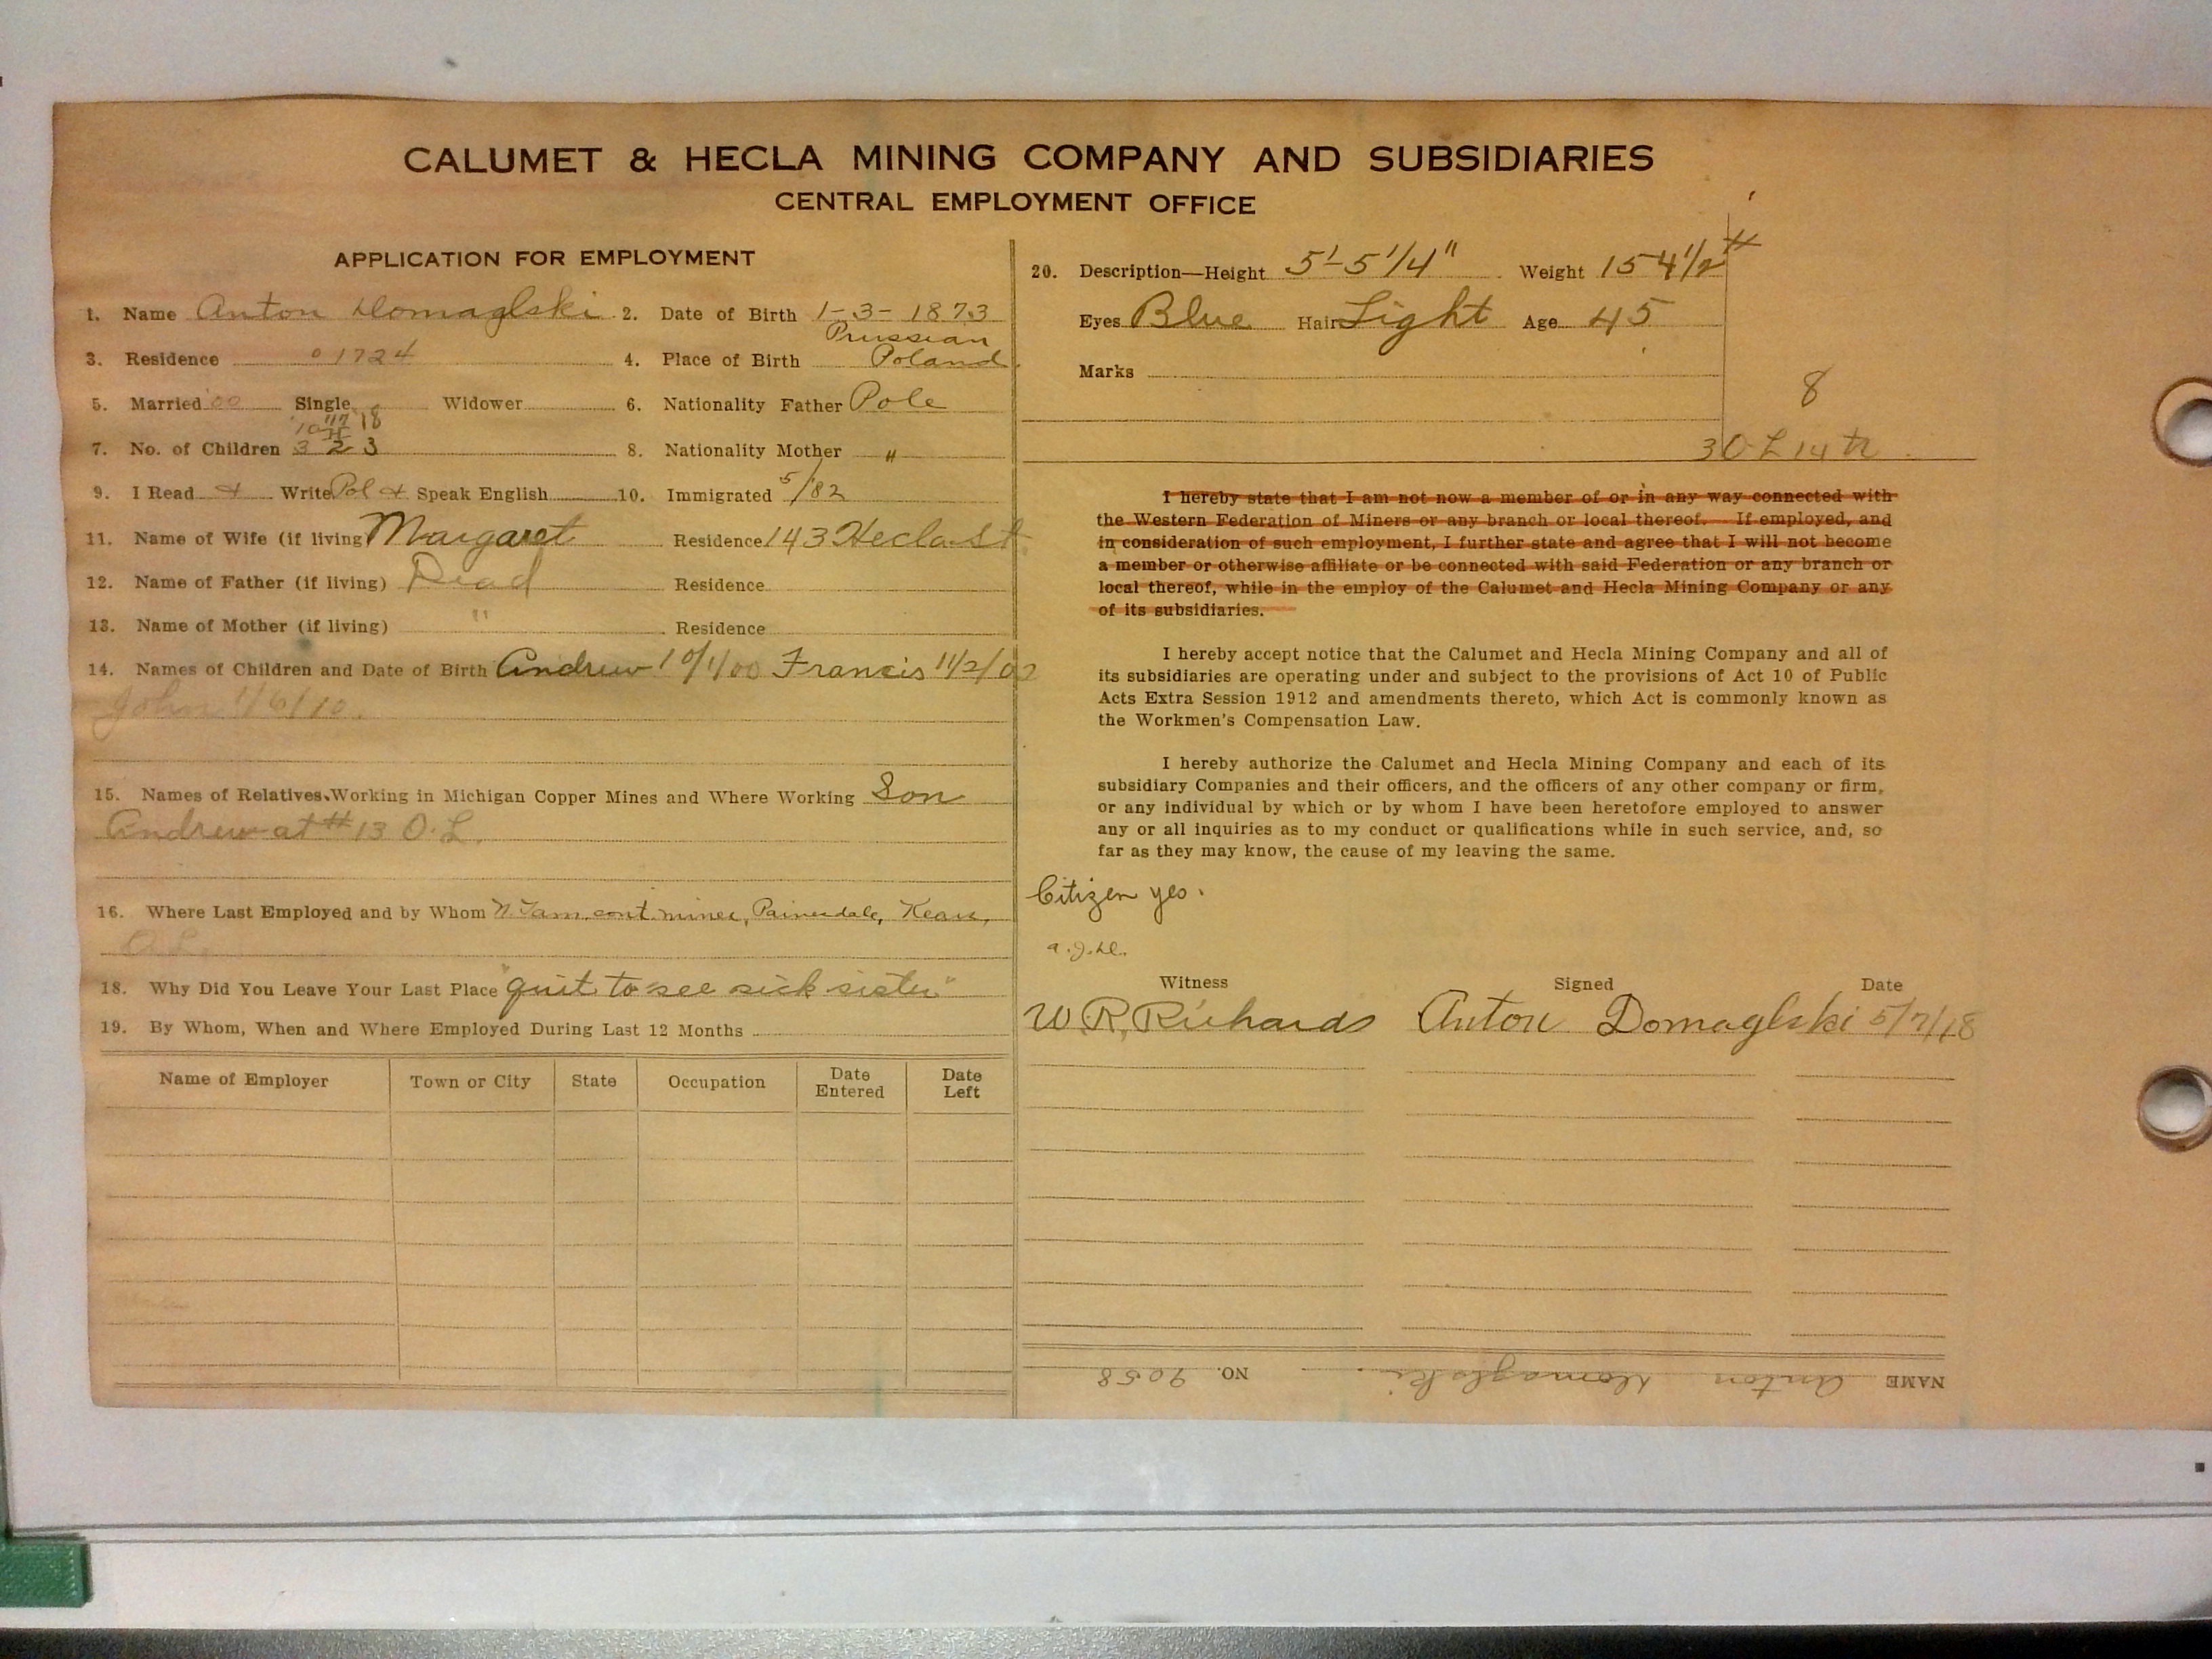 CALUMET & HECLA MINING COMPANY AND SUBSIDIARIES
CENTRAL EMPLOYMENT OFFICE
APPLICATION FOR EMPLOYMENT
1. Name Anton Domaglski 2. Date of Birth 1-3-1873
3. Residence 01724 4. Place of Birth Prussian Poland
5. Married Single Widower 6. Nationality Father Pole
7. No. of Children 3 2 3 8. Nationality Mother "
9. I Read & Write Pol & Speak English 10. Immigrated 5/82
11. Name of Wife (if living) Margaret Residence 143 Hecla St.
12. Name of Father (if living) Dead Residence
13. Name of Mother (if living) " Residence
14. Names of Children and Date of Birth Andrew 10/1/00 Francis 11/2/02
John 1/6/10.
15. Names of Relatives Working in Michigan Copper Mines and Where Working Son
Andrew at #13 O.L.
16. Where Last Employed and by Whom N. Tam. cont. miner, Painesdale, Kear.,
O.L.
18. Why Did You Leave Your Last Place "quit to see sick sister"
19. By Whom, When and Where Employed During Last 12 Months
Name of Employer Town or City State Occupation Date Entered Date Left
20. Description—Height 5'-5 1/4" Weight 154 1/2 #
Eyes Blue Hair Light Age 45
Marks
8
30L 14th
I hereby state that I am not now a member of or in any way connected with
the Western Federation of Miners or any branch or local thereof. If employed, and
in consideration of such employment, I further state and agree that I will not become
a member or otherwise affiliate or be connected with said Federation or any branch or
local thereof, while in the employ of the Calumet and Hecla Mining Company or any
of its subsidiaries.
I hereby accept notice that the Calumet and Hecla Mining Company and all of
its subsidiaries are operating under and subject to the provisions of Act 10 of Public
Acts Extra Session 1912 and amendments thereto, which Act is commonly known as
the Workmen's Compensation Law.
I hereby authorize the Calumet and Hecla Mining Company and each of its
subsidiary Companies and their officers, and the officers of any other company or firm,
or any individual by which or by whom I have been heretofore employed to answer
any or all inquiries as to my conduct or qualifications while in such service, and, so
far as they may know, the cause of my leaving the same.
Citizen yes.
Witness Signed Date
W.R. Richards Anton Domaglski 5/7/18
NAME Anton Domaglski NO. 9058